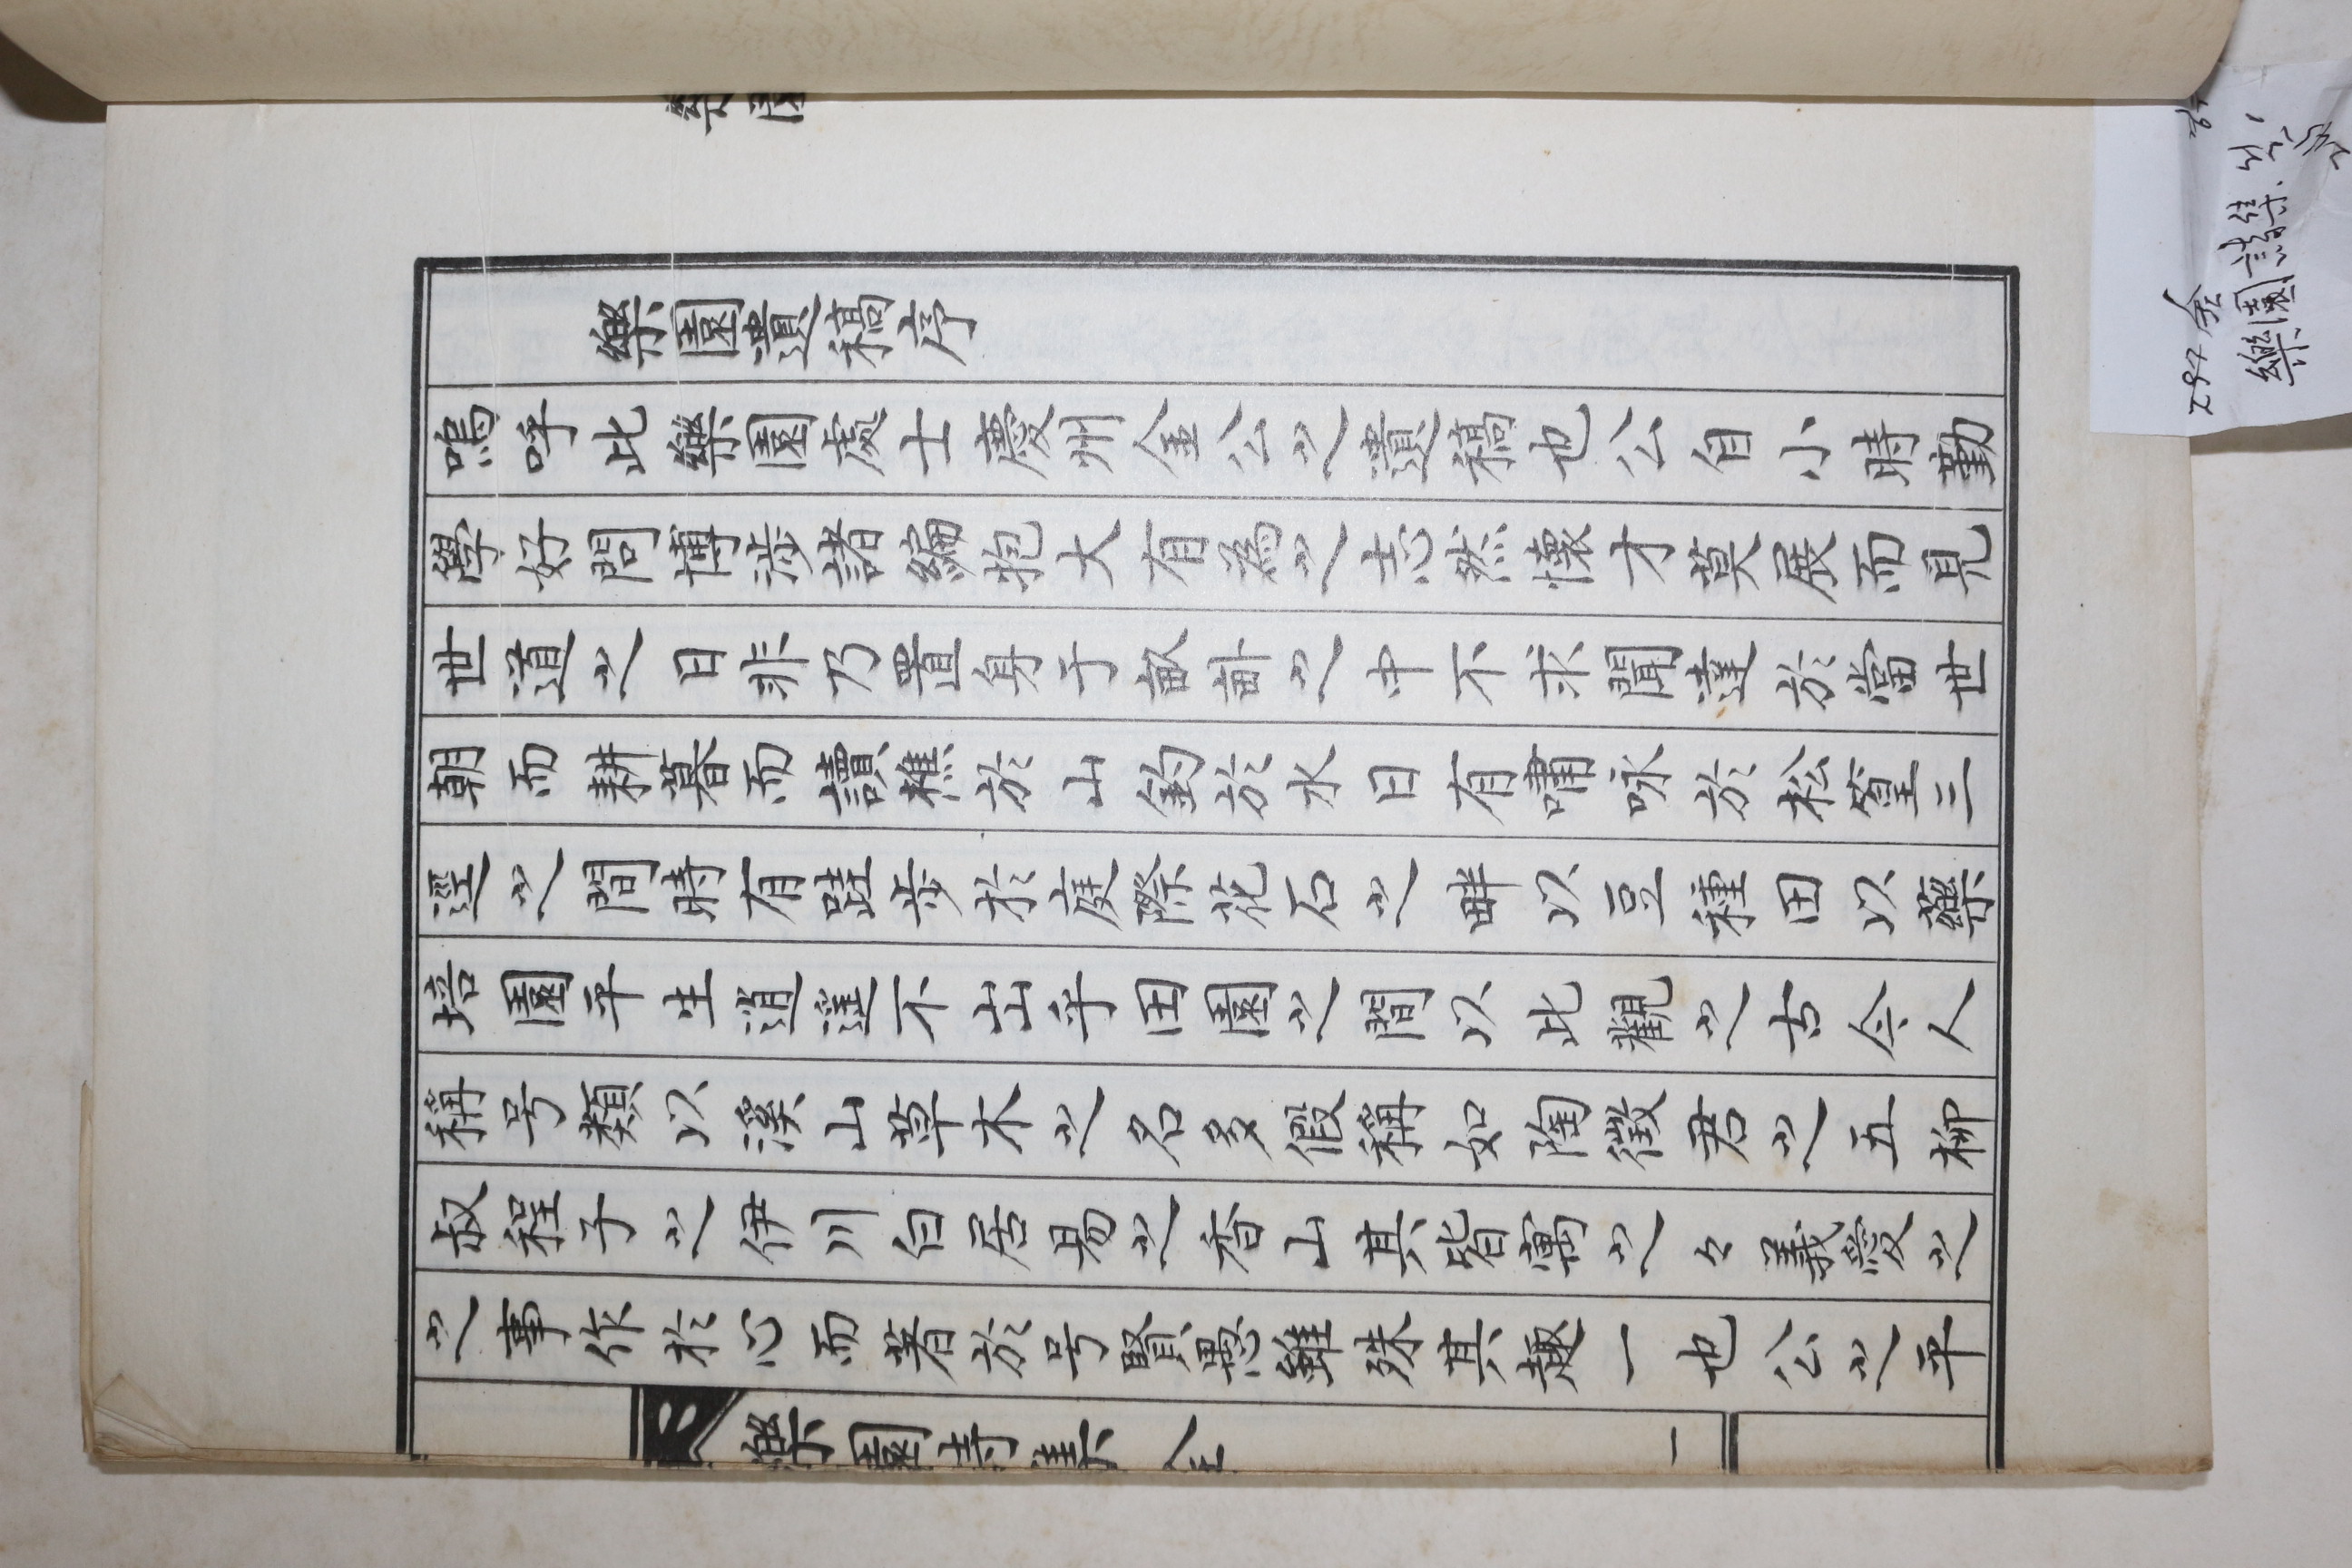 樂園遺稿序
嗚呼此樂園處士慶州金公之遺稿也公自小時勤
學好問博涉諸編抱大有為之志然懷才莫展而見
世道之日非乃置身于畝畝之中不求聞達於當世
朝而耕暮而讀樵於山釣於水日有嘯咏於松篁三
逕之間時有跬步於庭際花石之畔以豆種田以藥
培園平生逍遙不出乎田園之間以此觀之古今人
稱号類以溪山草木之名多假稱如陶徵君之五柳
叔程子之伊川白居易之香山其皆寓之々義愛之
之事作於心而著於号賢愚雖殊其趣一也公之平
樂園詩集 全
一
樂園
297 金
樂園詩集